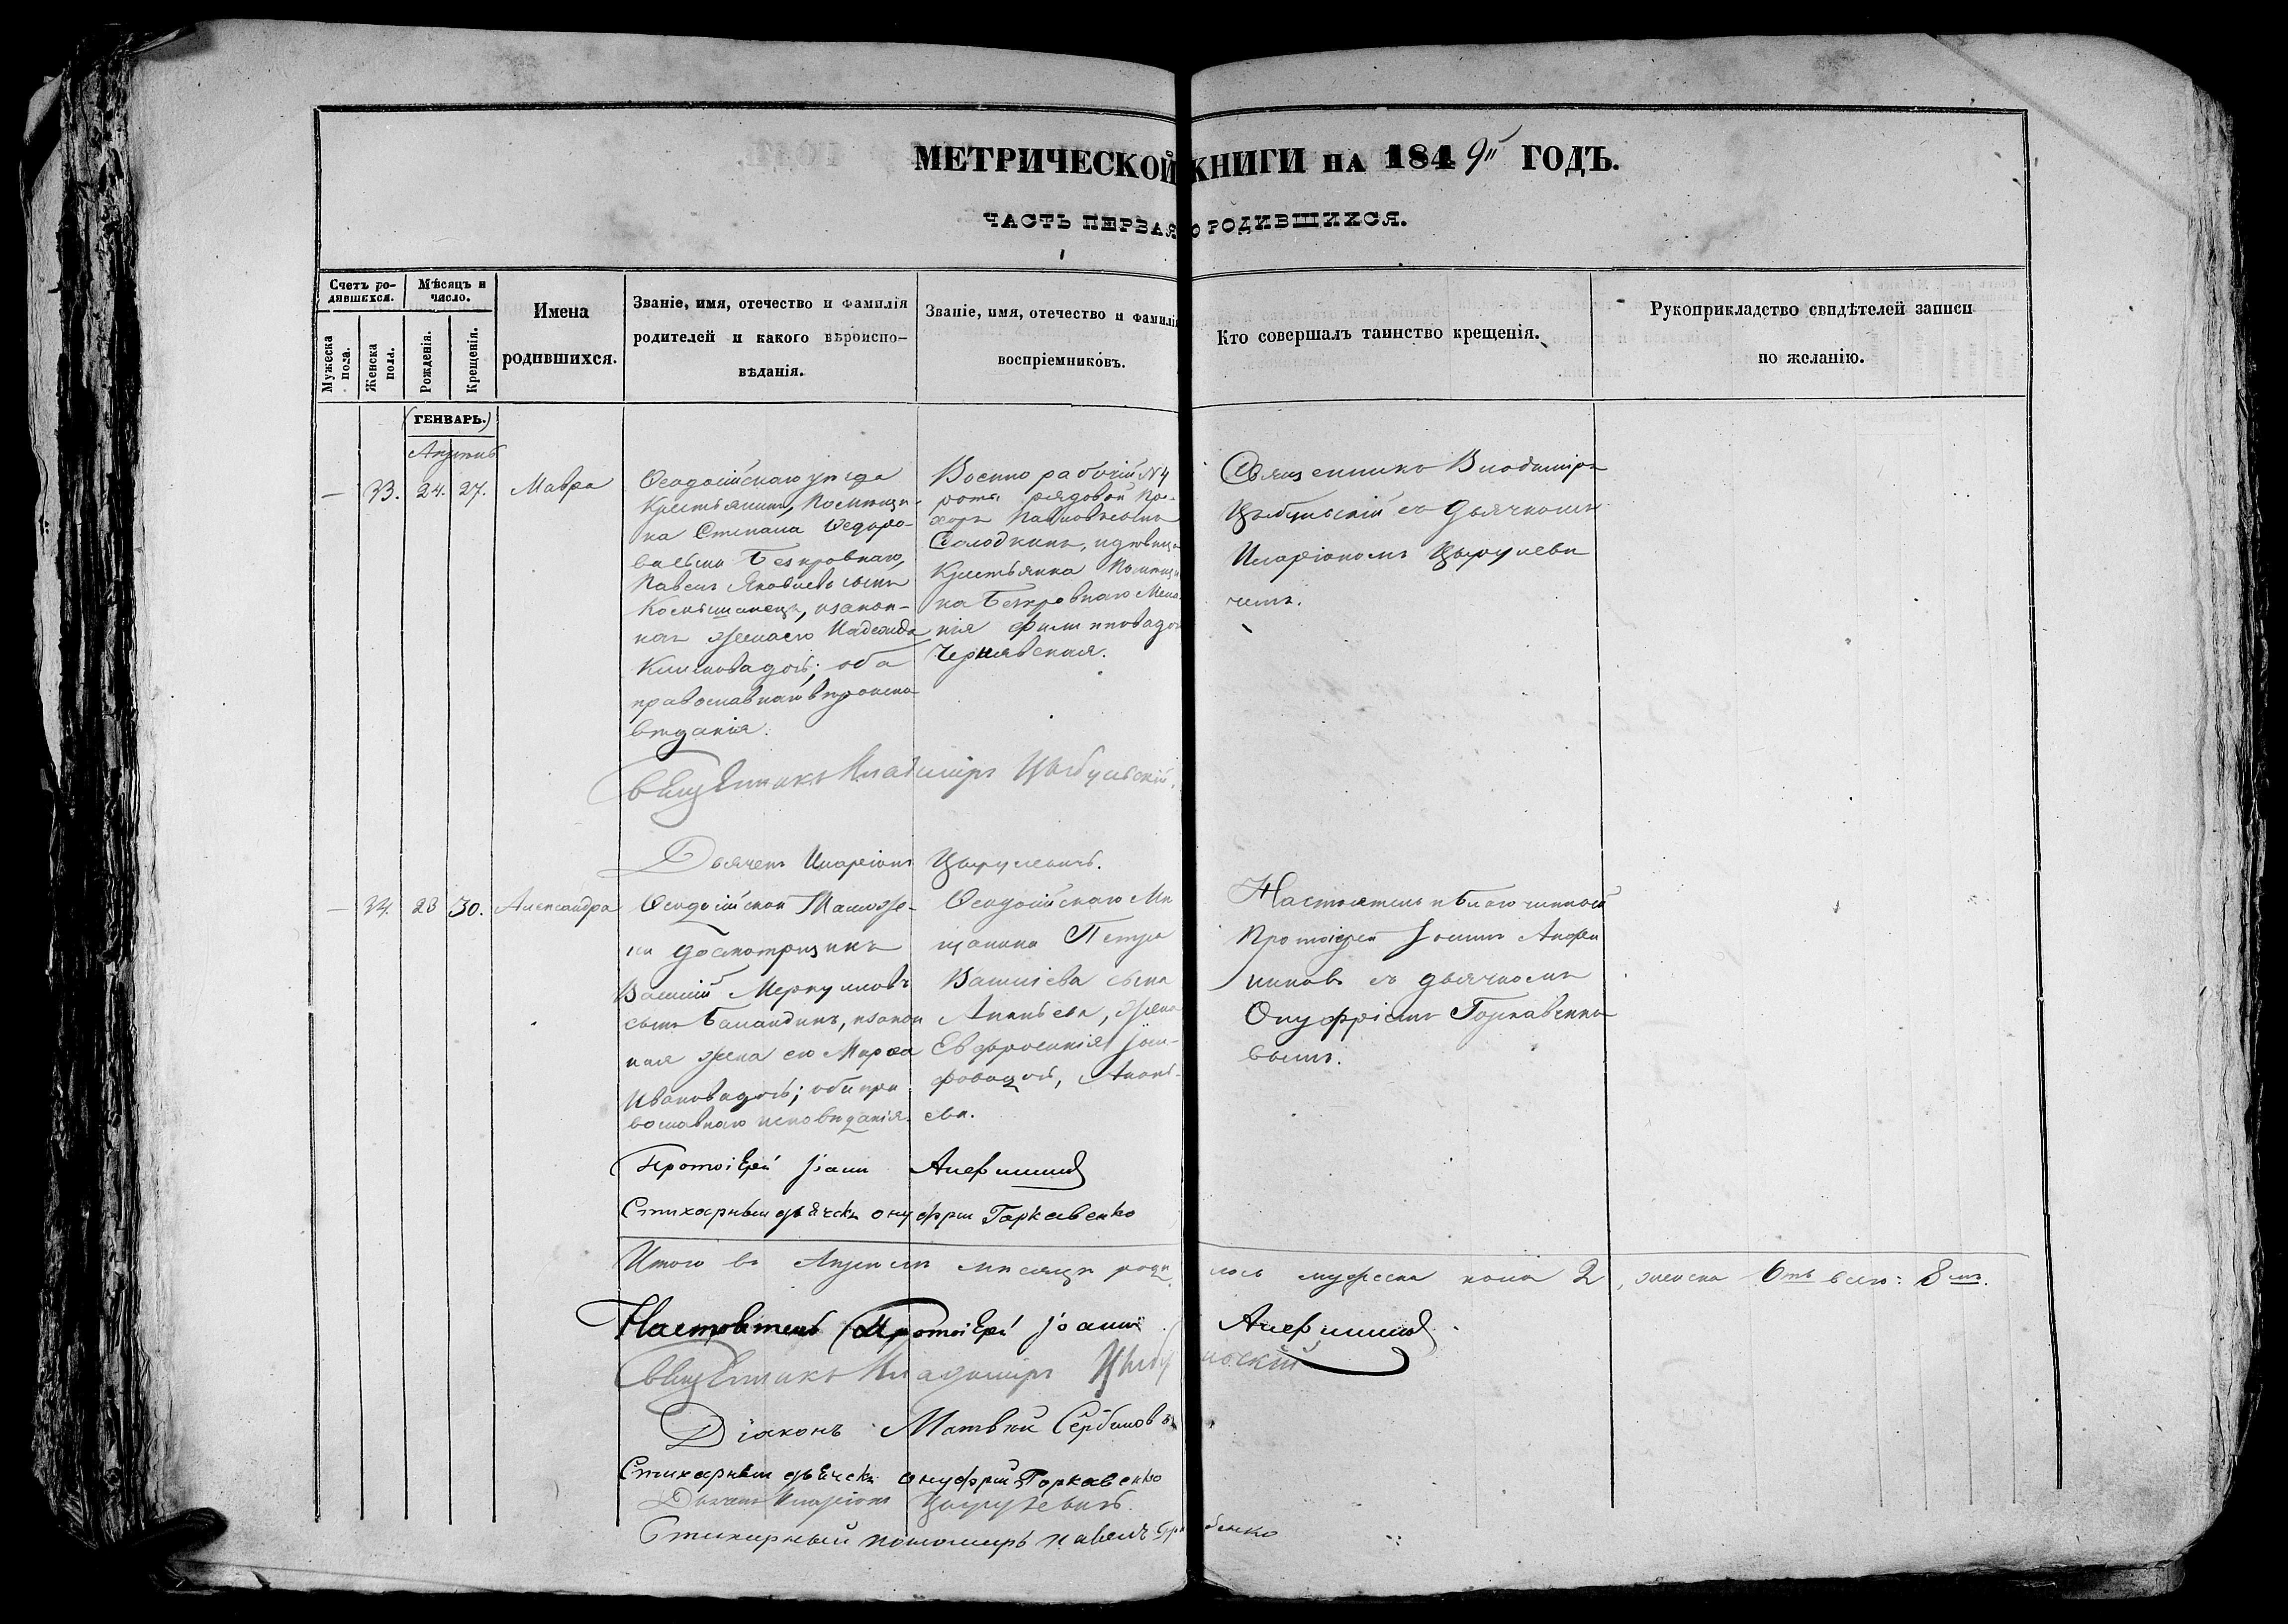 МЕТРИЧЕСКОЙ КНИГИ НА 1849й ГОДЪ.
ЧАСТЬ ПЕРВАЯ О РОДИВШИХСЯ.
Счетъ ро-
дившихся.
Мужеска
пола.
Женска
пола.
Мѣсяцъ и
число.
Рожденія.
Крещенія.
Имена
родившихся.
Званіе, имя, отечество и фамилія
родителей и какого вѣроиспо-
вѣданія.
Званіе, имя, отечество и фамилія
воспріемниковъ.
Кто совершалъ таинство крещенія.
Рукоприкладство свидѣтелей записи
по желанію.
(ГЕНВАРЬ.)
— 33. 24. 27. Мавра
Ѳеодосійскаго уѣзда
Крестьянинъ, Помѣщи-
ка Степана Ѳедоро-
ва сына Безкровнаго,
Павелъ Яковлевъ сынъ
и закон-
ная жена его Надежда
Климова дочь; оба
православнаго вѣроиспо
вѣданія.
Военно рабочій №4
роты рядовой Про-
хоръ Павловъ сынъ
Солодкинъ, и дѣвица
Крестьянка Помѣщи
ка Безкровнаго Мела
нія Филиппова дочь
Чернявская.
Священникъ Владиміръ
Цыбульскій съ дьячкомъ
Иларіономъ Цырулеви
чемъ.
Священникъ Владиміръ Цыбульскій.
Дьячекъ Иларіонъ Цырулевичъ.
— 34. 28 30. Александра
Ѳеодосійской Таможе-
ни досмотрщикъ
Василій Меркуловъ
сынъ Баландинъ, и закон
ная жена его Марѳа
Иванова дочь; оба пра
вославнаго исповѣданія.
Ѳеодосійскаго Мѣ
щанина Петра
Васильева сына
Ананьева, жена
Евфросинія
дочь, Анань-
ева.
Настоятель и благочинный
Протоіерей Іоаннъ
съ дьячкомъ
Онуфріемъ Горкавенко
вымъ.
Протоіерей Іоаннъ
Стихарный дьячекъ Онуфрій Горкавенко
Итого въ Апрѣлѣ мѣсяцѣ роди лось мужеска пола 2, женска 6ть всего: 8мь.
Настоятель Протоіерей Іоаннъ
Священникъ Владиміръ Цыбульскій
Діаконъ Матвѣй Сербиновъ
Стихарный дьячекъ Онуфрій Горкавенко
Дьячекъ Иларіонъ Цырулевичъ.
Стихарный пономарь Павелъ